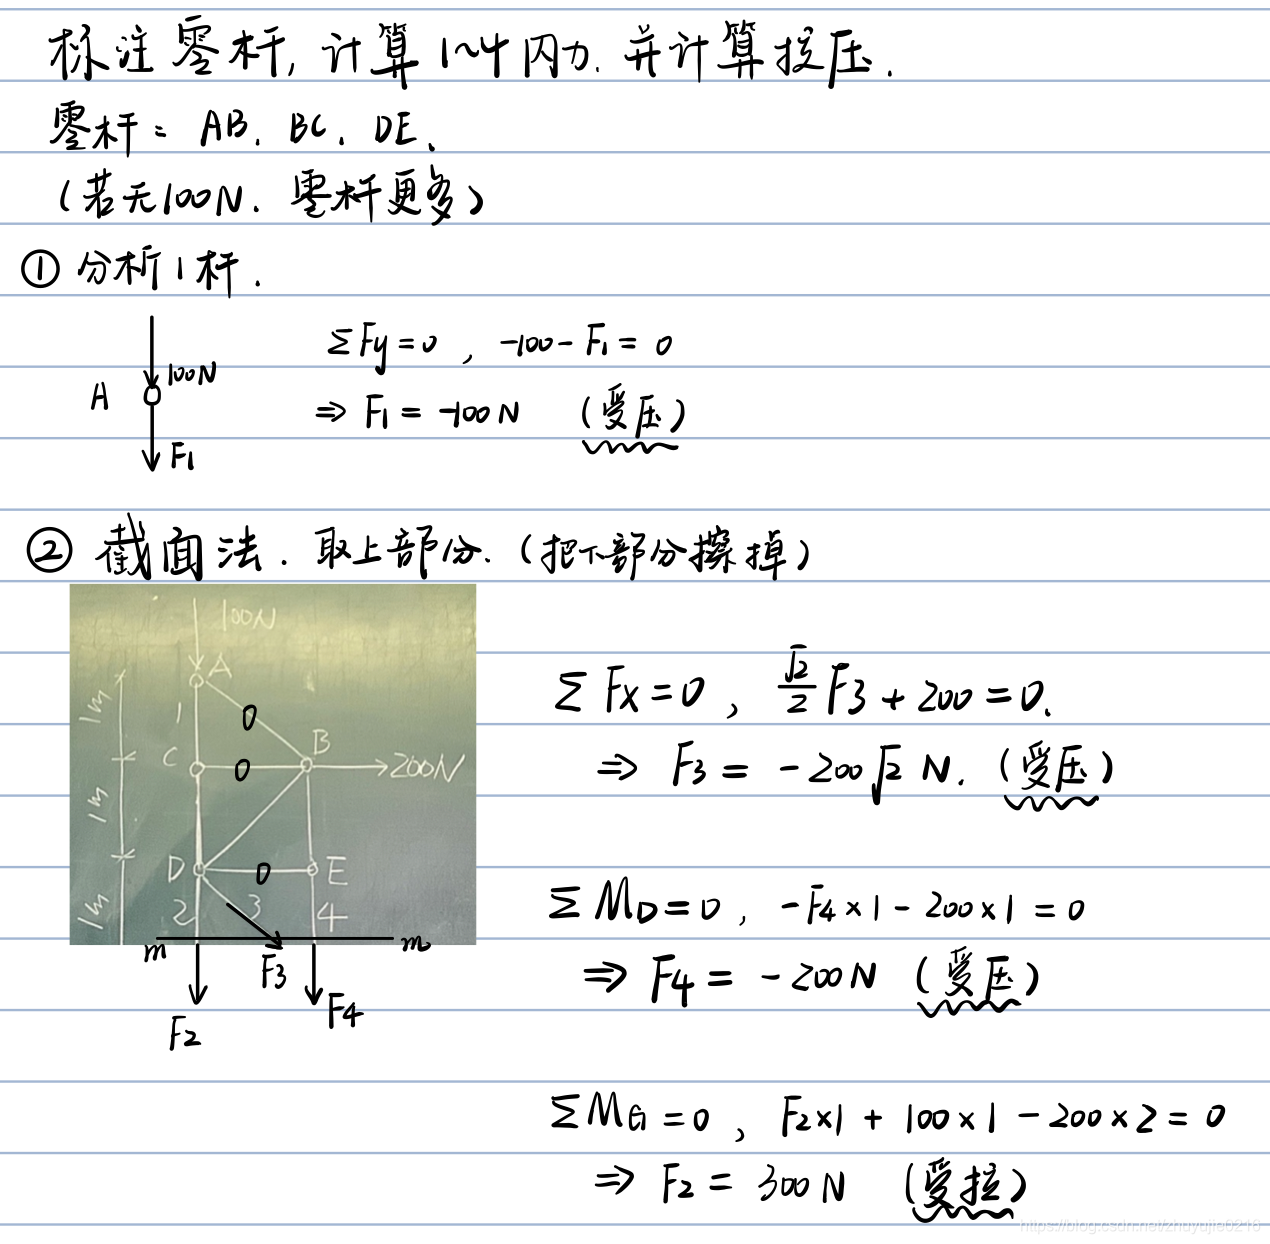 标注零杆, 计算1~4内力. 并计算拉压.
零杆: AB. BC. DE.
(若无100N. 零杆更多)
① 分析1杆.
A
100N
F1
ΣFy=0, -100-F1=0
⇒ F1=-100N (受压)
② 截面法. 取上部分. (把下部分擦掉)
100N
A
1m
1
0
B
C
0
200N
1m
D
0
E
1m
2
3
4
m
m
F3
F2
F4
ΣFx=0, √2/2 F3+200=0.
⇒ F3=-200√2 N. (受压)
ΣMD=0, -F4×1-200×1=0
⇒ F4=-200N (受压)
ΣMG=0, F2×1+100×1-200×2=0
⇒ F2=300N (受拉)
https://blog.csdn.net/zhuyujie0216